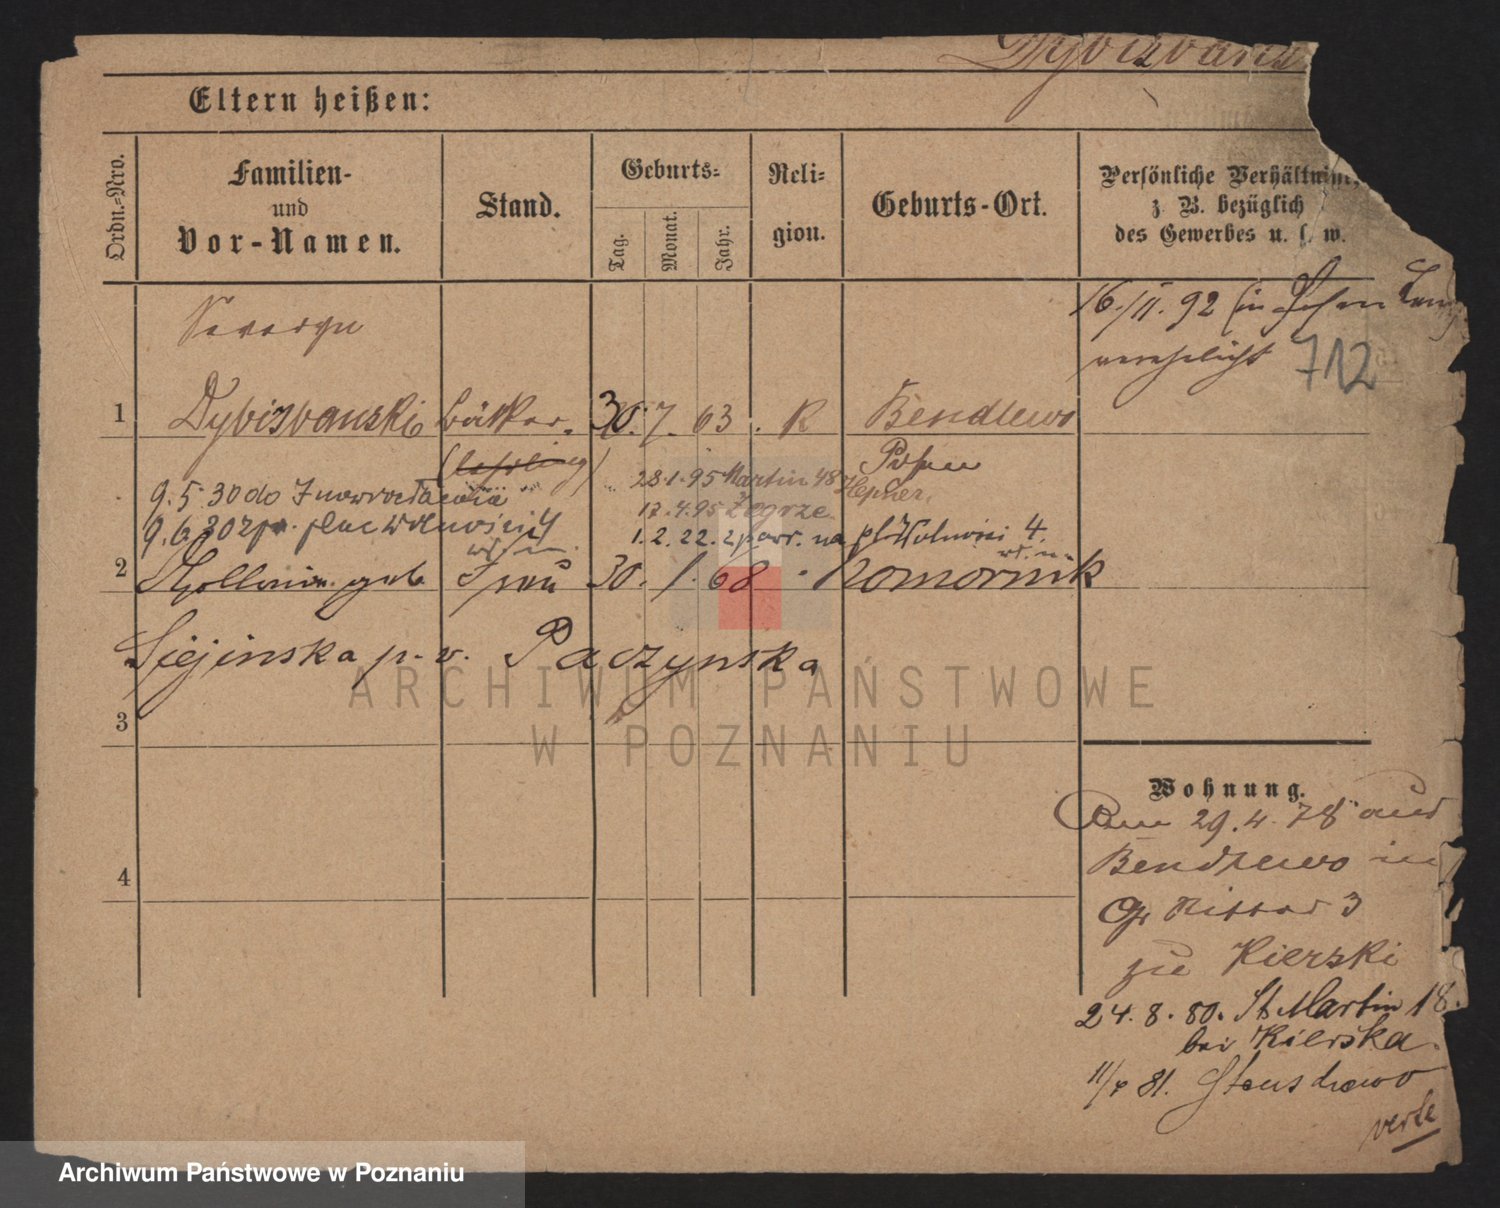 Dybizbansk
Eltern heißen:
Ordn.-Nro.
Familien-
und
Vor-Namen.
Stand.
Geburts-
Tag.
Monat.
Jahr.
Reli-
gion.
Geburts-Ort.
Persönliche Verhältnisse,
z. B. bezüglich
des Gewerbes u. s. w.
16./II. 92 in Posen
verehelicht
712
Severyn
1 Dybizbanski Bäcker. 30. 7. 63. R Bendlewo
(Lehrling) Posen
9.5.30 do Inowrocławia
28.1.95 Martin 48
17.4.95 Zegrze
9.6.30 plac Wolności 4
1.2.22. z pow. na pl. Wolności 4.
2 geb. Frau 30. 1. 68 Komornik
p. v. Paczynska
3
4
Wohnung.
Am 29.4.78 aus
Bendlewo in
Gr Ritter 3
zu Kierski
24.8.80. St Martin 18.
bei Kierska.
81.
verte
ARCHIWUM PAŃSTWOWE
W POZNANIU
Archiwum Państwowe w Poznaniu